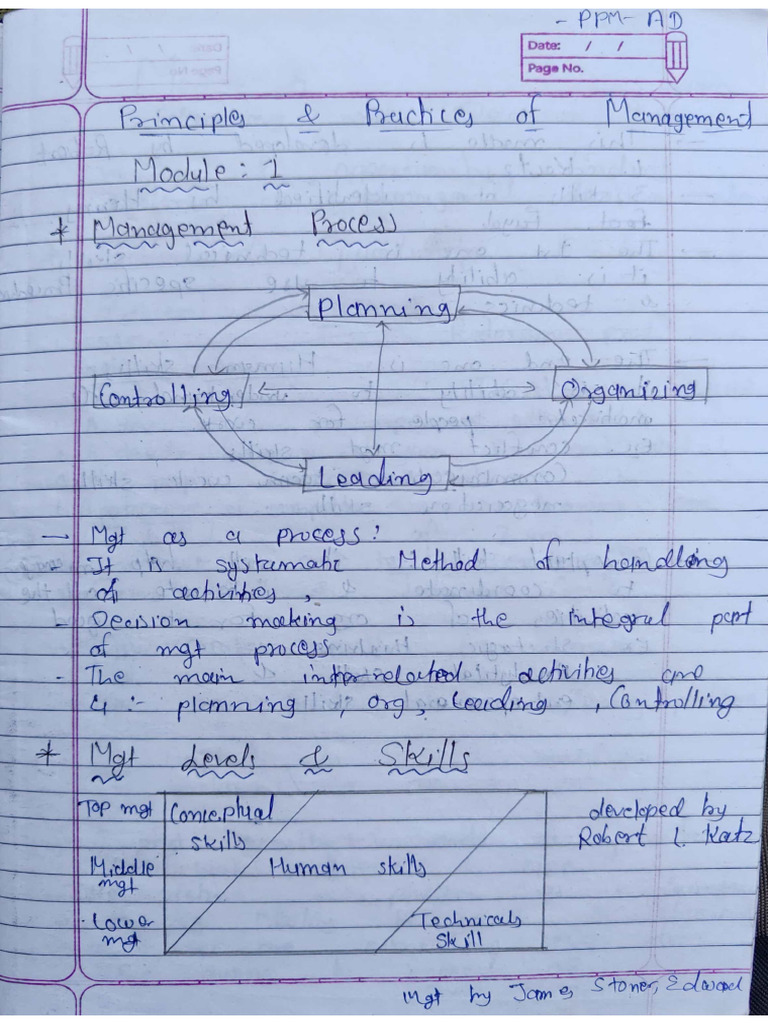 - PPM - AD
Date: / /
Page No.
Principles & Practices of Management
Module: 1
* Management Process
Planning
Controlling
Organizing
Leading
— Mgt as a process:
- It is systematic Method of handling
of activities,
- Decision making is the integral part
of mgt process
- The main inter-related activities are
4 :- planning, org, Leading, Controlling
* Mgt Levels & Skills
Top mgt Conceptual skills
developed by
Robert L. Katz
Middle mgt Human skills
Lower mgt Technicals skill
Mgt by James Stoner, Edward